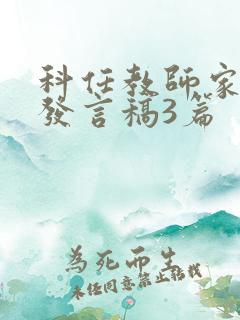 科任教師家
發言稿3篇
為死而生
未任同意禁止轉載